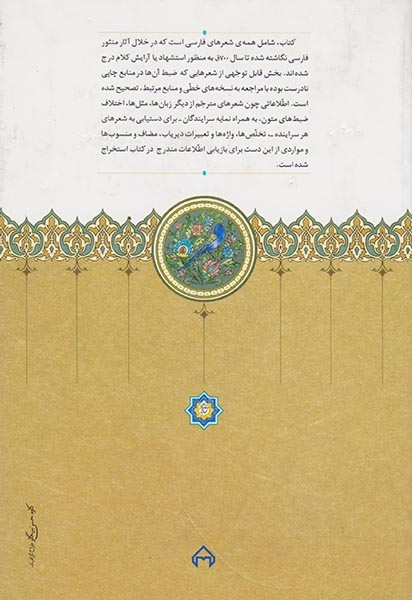 کتاب، شامل همه‌ی شعرهای فارسی است که در خلال آثار منثور
فارسی نگاشته شده تا سال ۷۰۰ق به منظور استشهاد یا آرایش کلام درج
شده‌اند. بخش قابل توجّهی از شعرهایی که ضبط آن‌ها در منابع چاپی
نادرست بوده با مراجعه به نسخه‌های خطّی و منابع مرتبط، تصحیح شده
است. اطّلاعاتی چون شعرهای مترجم از دیگر زبان‌ها، مثل‌ها، اختلاف
ضبط‌های متون، به همراه نمایه سرایندگان ـ برای دستیابی به شعرهای
هر سراینده ـ، تخلّص‌ها، واژه‌ها و تعبیرات دیریاب، مضاف و منسوب‌ها
و مواردی از این دست برای بازیابی اطّلاعات مندرج در کتاب استخراج
شده است.